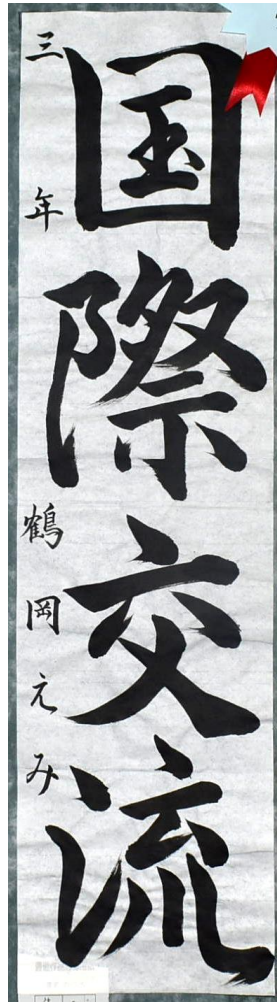 国際交流
三年 鶴岡えみ